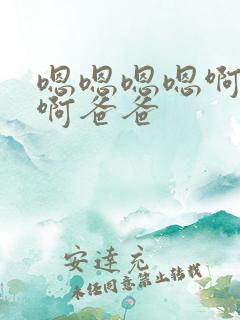 嗯嗯嗯嗯啊
啊爸爸
安達充
未经同意禁止转载